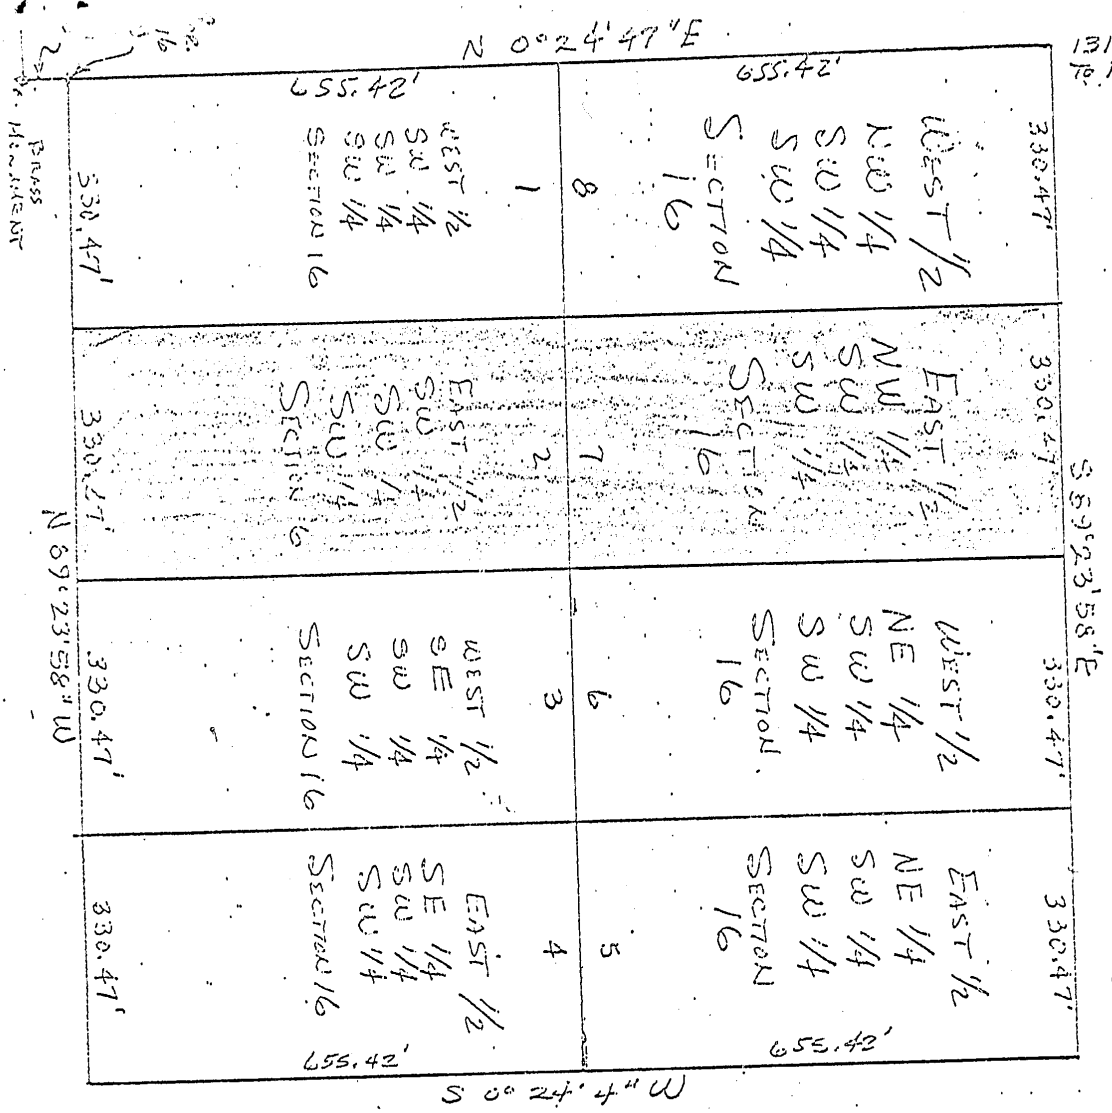 N 0° 24' 47" E
131
655.42'
655.42'
16
2
BRASS
MONUMENT
330.47'
WEST 1/2
SW 1/4
SW 1/4
SW 1/4
SECTION 16
1
8
WEST 1/2
NW 1/4
SW 1/4
SW 1/4
SECTION
16
330.47'
330.47'
EAST 1/2
SW 1/4
SW 1/4
SW 1/4
SECTION 16
2
7
EAST 1/2
NW 1/4
SW 1/4
SW 1/4
SECTION
16
330.47
S 89° 23' 58" E
N 89° 23' 58" W
330.47'
WEST 1/2
SE 1/4
SW 1/4
SW 1/4
SECTION 16
3
6
WEST 1/2
NE 1/4
SW 1/4
SW 1/4
SECTION
16
330.47'
330.47'
EAST 1/2
SE 1/4
SW 1/4
SW 1/4
SECTION 16
4
5
EAST 1/2
NE 1/4
SW 1/4
SW 1/4
SECTION
16
330.47'
655.42'
655.42'
S 0° 24' 4" W